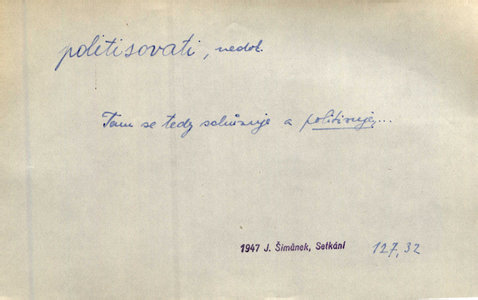 politisovati, nedok.
Tam se tedy schůzuje a politisuje,...
1947 J. Šimánek, Setkání 127, 32